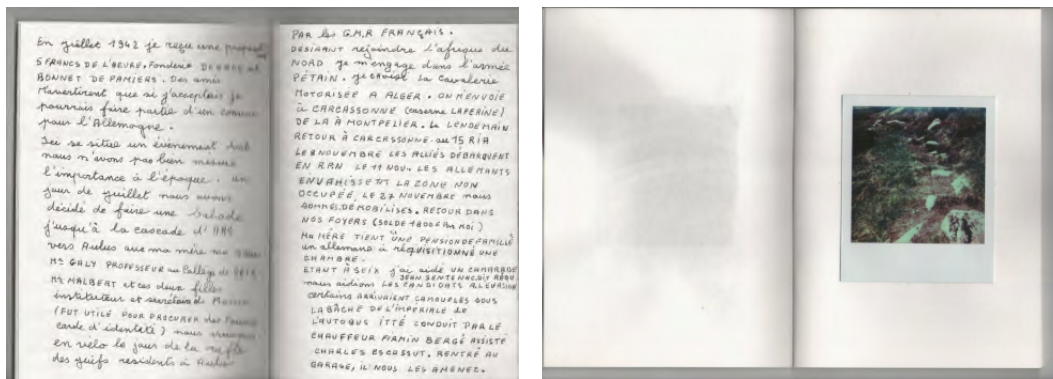 En juillet 1942 je reçu une
5 FRANCS DE L'HEURE. Fonderie et
BONNET DE PAMIERS. Des amis
m'avertirent que si j'acceptais je
pourrais faire partie d'un convoi
pour l'Allemagne.
Ici se situe un évènement dont
nous n'avons pas bien mesuré
l'importance à l'époque. un
jour de juillet nous avons
décidé de faire une balade
jusqu'à la cascade d'ARS
vers Aulus avec ma mère ma
Mr GALY PROFESSEUR au Collège de
Mr MALBERT et ces deux filles
instituteur et secrétaire de Mairie
(FUT UTILE POUR PROCURER des fausses
carte d'identité) nous
en vélo le jour de la rafle
des juifs residents à Aulus
PAR les G.M.R FRANÇAIS.
DESIRANT rejoindre l'afrique du
NORD je m'engage dans l'armée
PÉTAIN. je choisi La Cavalerie
MOTORISÉE A ALGER. ON M'ENVOIE
à CARCASSONNE (caserne LAPERINE)
DE LA À MONTPELIER. Le LENDEMAIN
RETOUR À CARCASSONNE. au 15 RIA
LE 8 NOVEMBRE LES ALLIÉS DÉBARQUENT
EN AFN LE 11 NOV. LES ALLEMANTS
ENVAHISSENT LA ZONE NON
OCCUPÉE. LE 27 NOVEMBRE nous
SOMMES DEMOBILISES. RETOUR DANS
NOS FOYERS (SOLDE 1800F
MA MÈRE TIENT UNE PENSION DE FAMILLE
un allemand à REQUISITIONNÉ UNE
CHAMBRE.
ETANT À SEIX j'ai aidé UN CAMARADE
JEAN SENTENAC DIT
nous aidions LES CANDIDATS A L'EVASION
certains ARRIVAIENT CAMOUFLÉS SOUS
LA BÂCHE DE L'IMPERIALE de
L'AUTOBUS CONDUIT PAR LE
CHAUFFEUR FIRMIN BERGÉ ASSISTÉ
CHARLES ESCASSUT. RENTRÉ AU
GARAGE, IL NOUS LES AMENEZ.